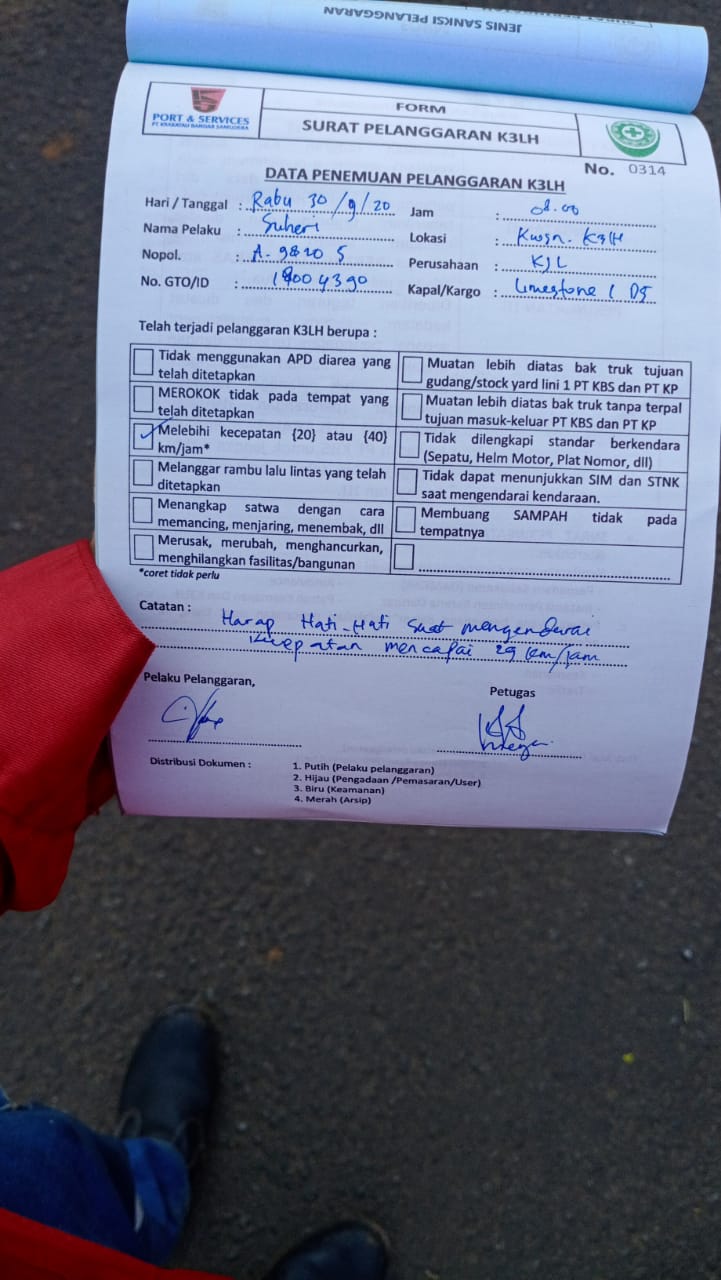 JENIS SANKSI PELANGGARAN
PORT & SERVICES
PT KRAKATAU BANDAR SAMUDERA
FORM
SURAT PELANGGARAN K3LH
No. 0314
DATA PENEMUAN PELANGGARAN K3LH
Hari / Tanggal : Rabu 30/9/20 Jam : 08.00
Nama Pelaku : Suheri Lokasi : Kwsn. K3LH
Nopol. : A. 9820 S Perusahaan : KJL
No. GTO/ID : 18004390 Kapal/Kargo : Limestone / D5
Telah terjadi pelanggaran K3LH berupa :
Tidak menggunakan APD diarea yang telah ditetapkan
Muatan lebih diatas bak truk tujuan gudang/stock yard lini 1 PT KBS dan PT KP
MEROKOK tidak pada tempat yang telah ditetapkan
Muatan lebih diatas bak truk tanpa terpal tujuan masuk-keluar PT KBS dan PT KP
Melebihi kecepatan {20} atau {40} km/jam*
Tidak dilengkapi standar berkendara (Sepatu, Helm Motor, Plat Nomor, dll)
Melanggar rambu lalu lintas yang telah ditetapkan
Tidak dapat menunjukkan SIM dan STNK saat mengendarai kendaraan.
Menangkap satwa dengan cara memancing, menjaring, menembak, dll
Membuang SAMPAH tidak pada tempatnya
Merusak, merubah, menghancurkan, menghilangkan fasilitas/bangunan
*coret tidak perlu
Catatan : Harap Hati-Hati saat mengendarai
Kecepatan mencapai 29 km/jam
Pelaku Pelanggaran, Petugas
Distribusi Dokumen : 1. Putih (Pelaku pelanggaran)
2. Hijau (Pengadaan /Pemasaran/User)
3. Biru (Keamanan)
4. Merah (Arsip)